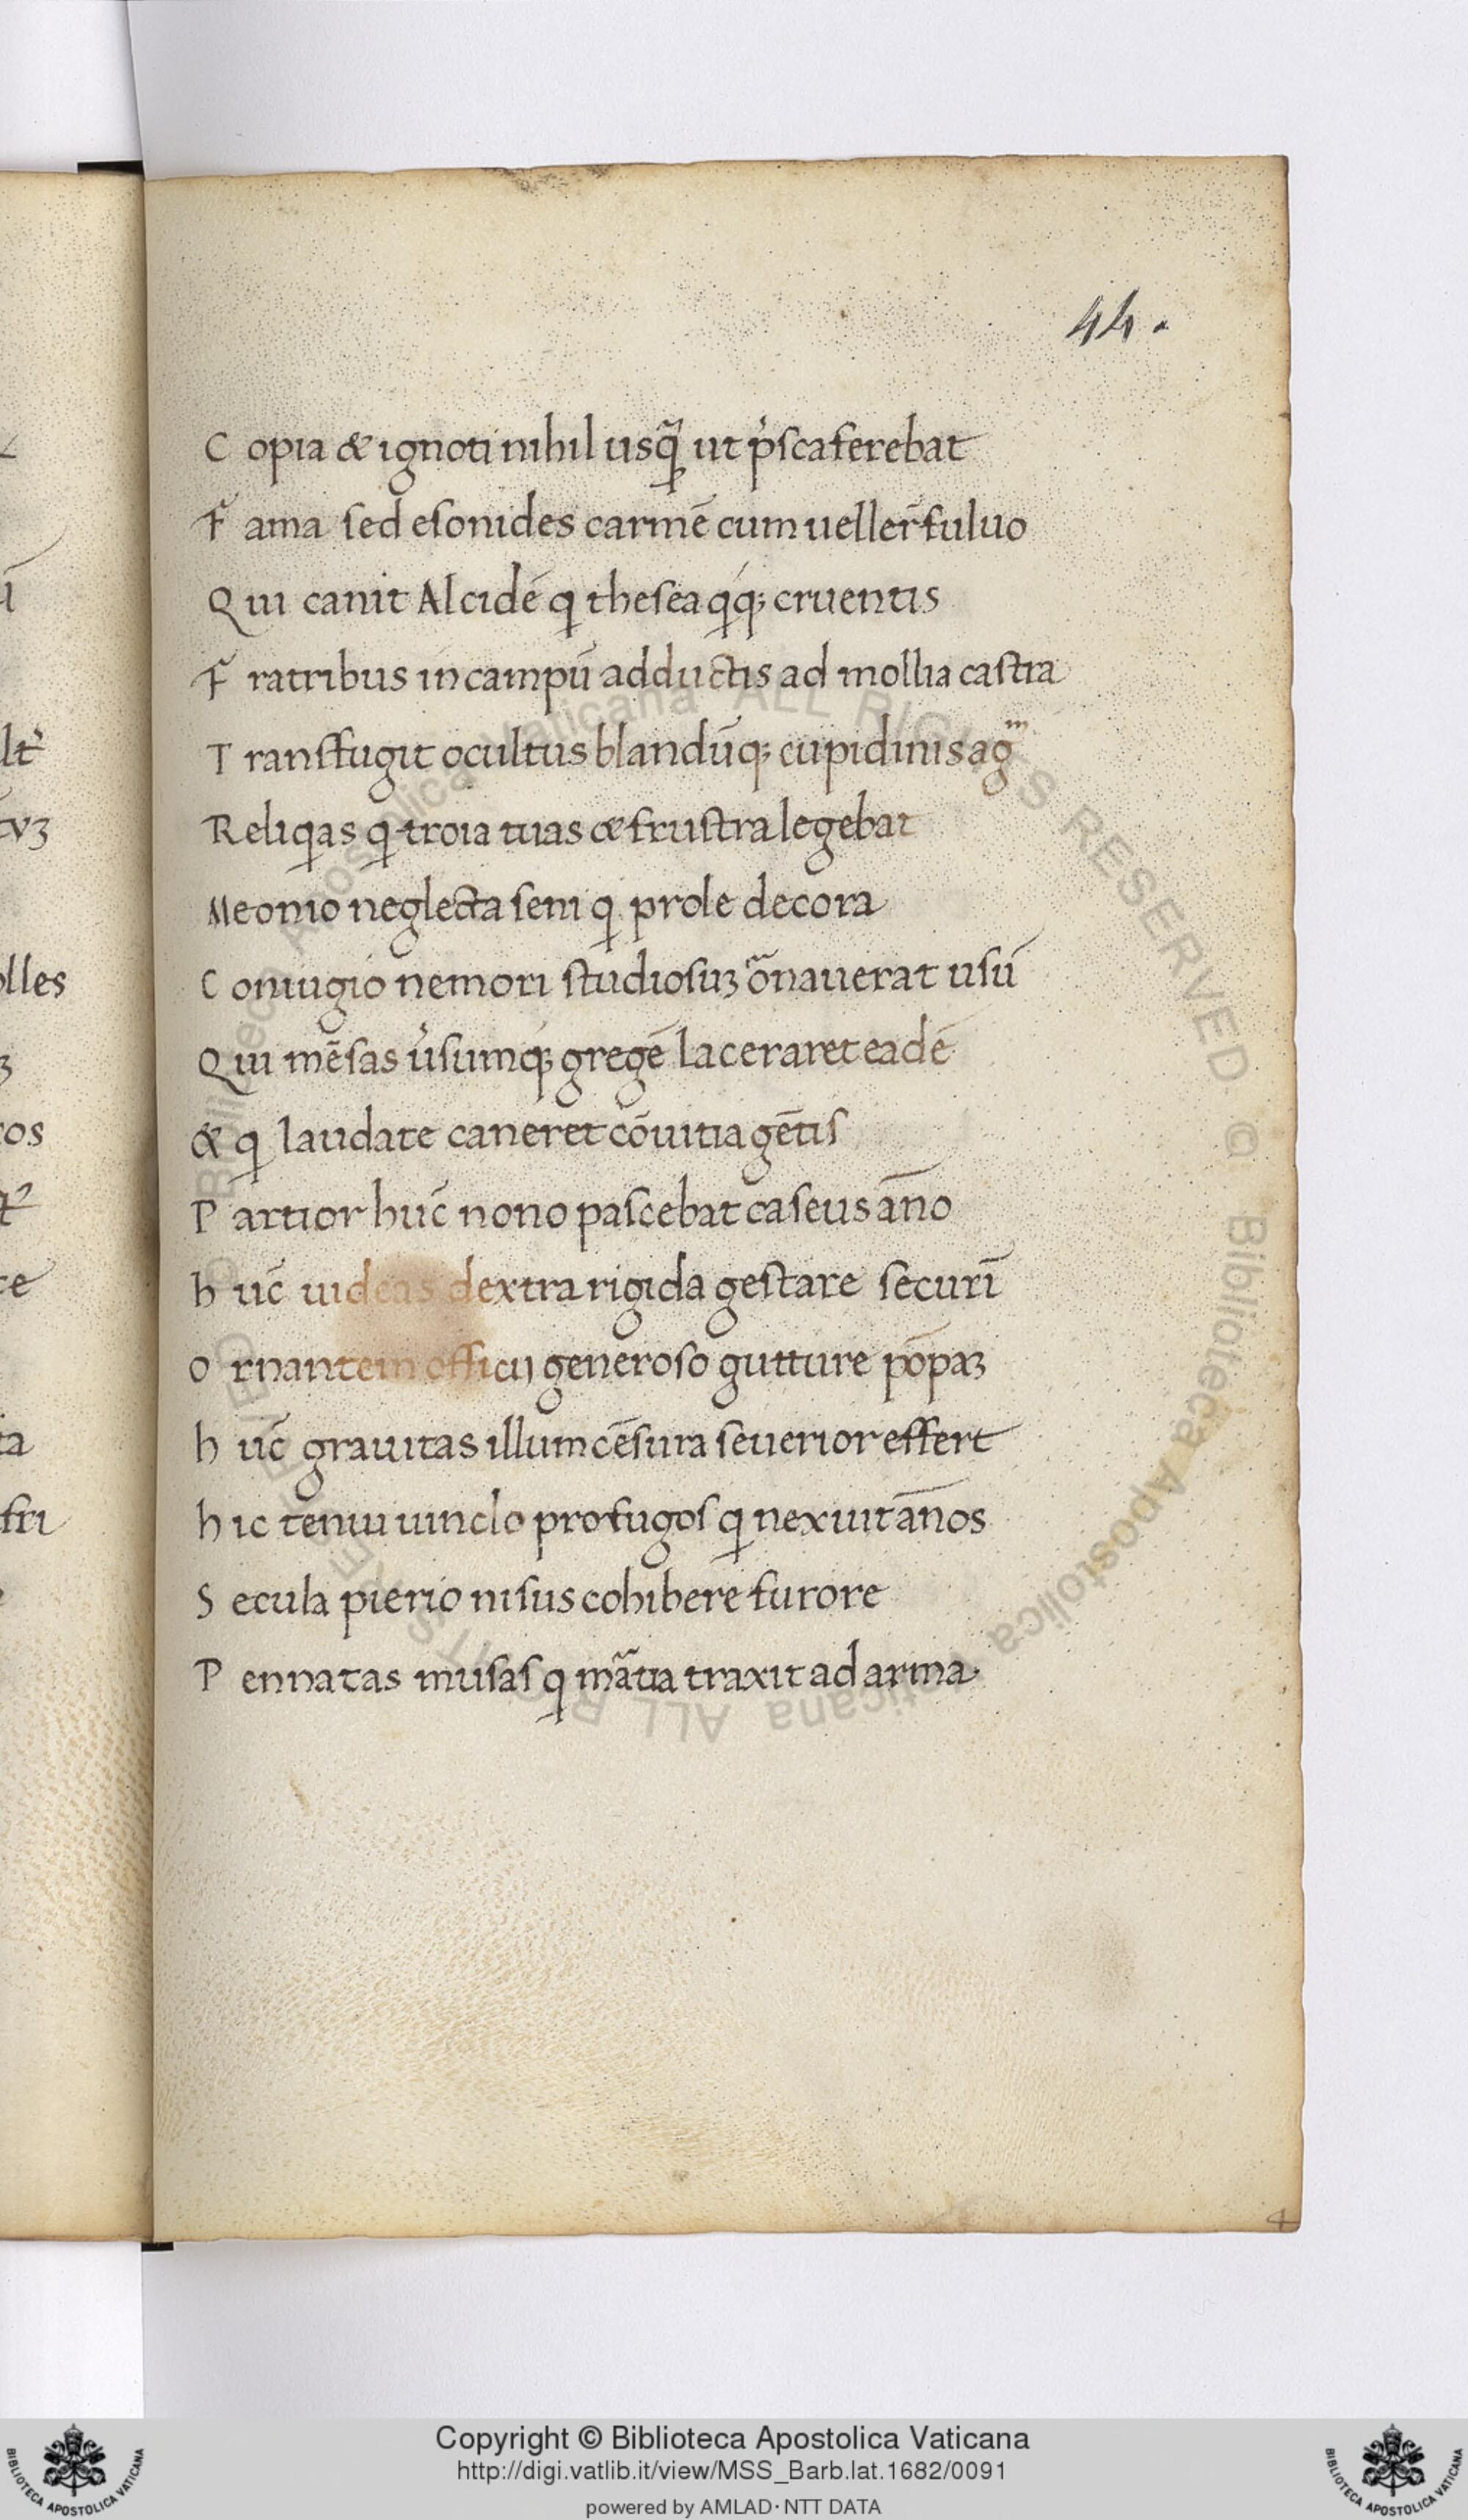 44.
C opia & ignoti nihil usq̃ ut p̓sca ferebat
F ama sed esonides carmē cum ueller̄ fuluo
Q ui canit Alcidē q thesea qq; cruentis
F ratribus in campū adductis ad mollia castra
T ransfugit ocultus blandūq; cupidinis ag̃
Reliqas q troia tuas & frustra legebat
Meonio neglecta seni q prole decora
C oniugio nemori studiosuʒ õnauerat usū
Q ui mēsas u̓sumq; gregē laceraret eadē
& q laudate caneret cōuitia gētis
P artior hūc nono pascebat caseus āno
h ūc uideas dextra rigida gestare securī
O rnantem officij generoso gutture pōpaʒ
h ūc grauitas illum cēsura seuerior effert
h ic tenui uinclo profugos q nexuit ānos
S ecula pierio nisus cohibere furore
P ennatas musas q mãtua traxit ad arma.
Copyright © Biblioteca Apostolica Vaticana
http://digi.vatlib.it/view/MSS_Barb.lat.1682/0091
powered by AMLAD·NTT DATA